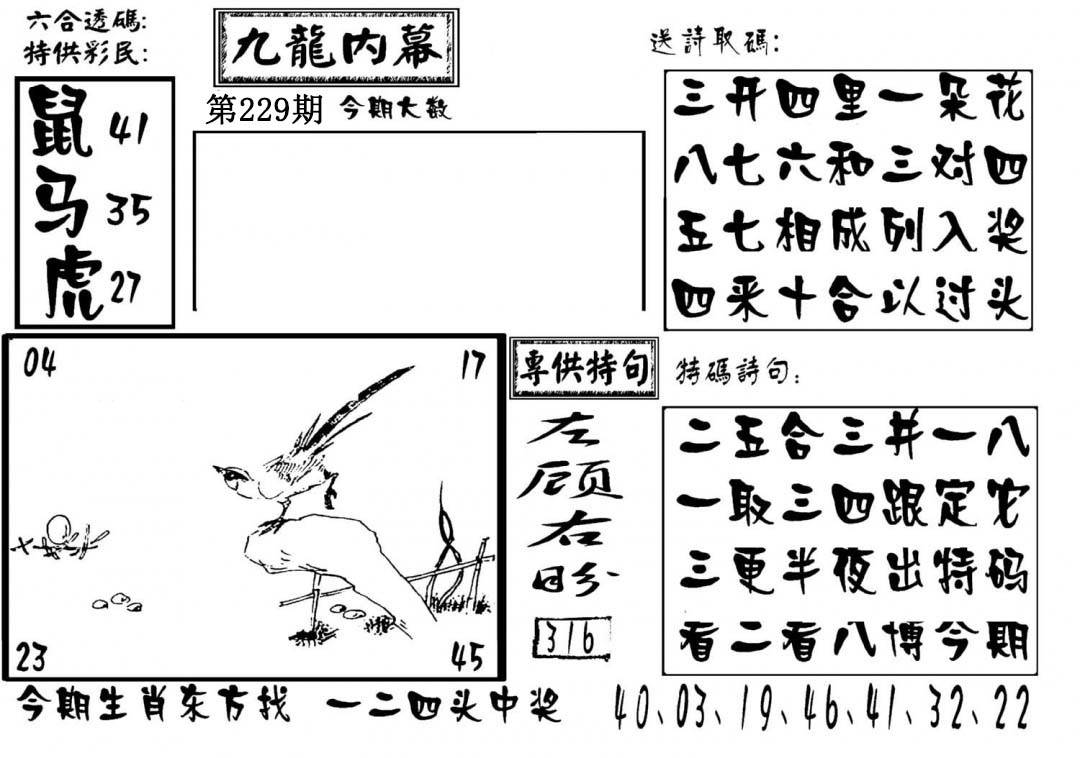 六合透碼:
特供彩民:
鼠 41
马 35
虎 27
九龍内幕
第229期 今期大数
送詩取碼:
三开四里一朵花
八七六和三对四
五七相成列入奖
四采十合以过头
04 17
23 45
專供特句
左
顾
右
盼
316
特碼詩句:
二五合三并一八
一取三四跟定它
三更半夜出特码
看二看八博今期
今期生肖东方找 一二四头中奖 40、03、19、46、41、32、22